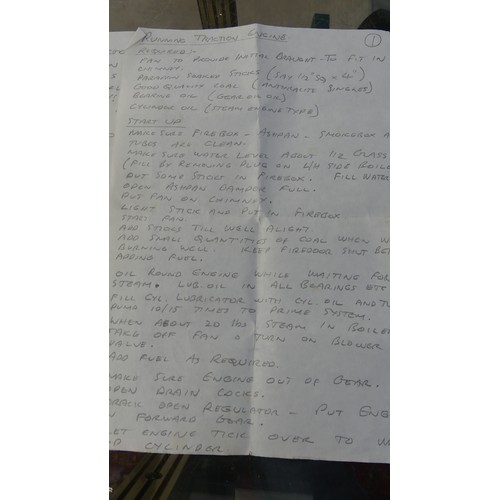 RUNNING TRACTION ENGINE
1
REQUIRED:-
FAN TO PROVIDE INITIAL DRAUGHT - TO FIT IN
CHIMNEY.
PARAFFIN SOAKED STICKS (SAY 1/2" SQ × 4")
GOOD QUALITY COAL (ANTHRACITE SINGLES)
BEARING OIL (GEAR OIL OR)
CYLINDER OIL (STEAM ENGINE TYPE)
START UP
MAKE SURE FIREBOX - ASHPAN - SMOKEBOX A
TUBES ARE CLEAN.
MAKE SURE WATER LEVEL ABOUT 1/2 GLASS
(FILL BY REMOVING PLUG ON L/H SIDE BOILE
PUT SOME STICKS IN FIREBOX. FILL WATER
OPEN ASHPAN DAMPER FULL.
PUT FAN ON CHIMNEY.
LIGHT STICK AND PUT IN FIREBOX
START FAN.
ADD STICKS TILL WELL ALIGHT
ADD SMALL QUANTITIES OF COAL WHEN W
BURNING WELL. KEEP FIREDOOR SHUT BET
ADDING FUEL.
OIL ROUND ENGINE WHILE WAITING FOR
STEAM. LUB. OIL IN ALL BEARINGS ETC
FILL CYL. LUBRICATOR WITH CYL. OIL AND TU
PUMP 10/15 TIMES TO PRIME SYSTEM.
WHEN ABOUT 20 lbs STEAM IN BOILE
TAKE OFF FAN & TURN ON BLOWER
VALVE.
ADD FUEL AS REQUIRED.
MAKE SURE ENGINE OUT OF GEAR.
OPEN DRAIN COCKS.
CRACK OPEN REGULATOR - PUT ENG
N FORWARD GEAR.
LET ENGINE TICK OVER TO W
CYLINDER.